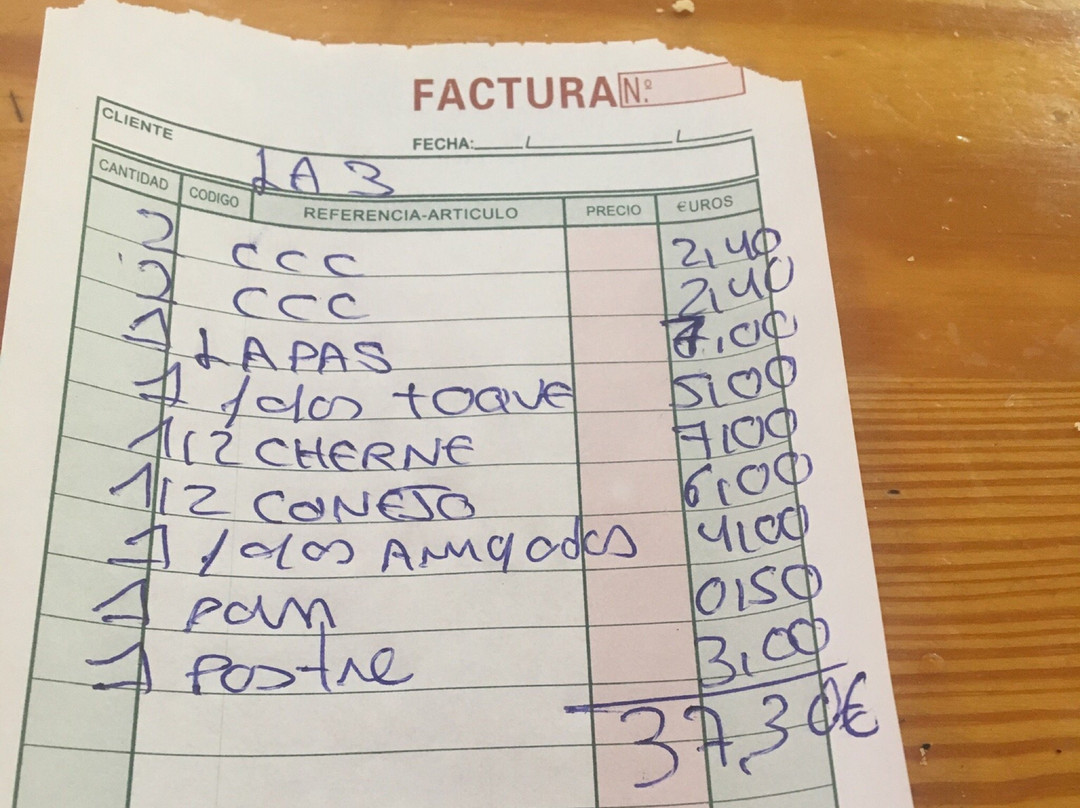 FACTURA Nº
CLIENTE
FECHA:
LA 3
CANTIDAD CODIGO REFERENCIA-ARTICULO PRECIO €UROS
2 CCC 2,40
2 CCC 2,40
1 LAPAS 7,00
1 Pdas TOQUE 5,00
1/2 CHERNE 7,00
1/2 CONEJO 6,00
1 Pdas ARRUgadas 4,00
1 Pan 0,50
1 Postre 3,00
37,30€